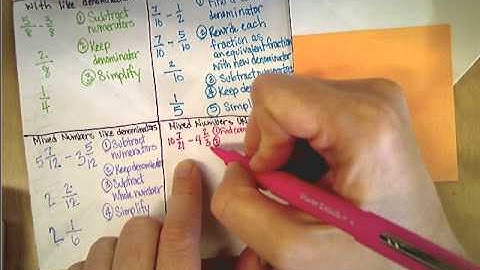 with like denominators
5/8 - 3/8
① Subtract
numerators
② Keep
denominator
③ Simplify
2/8
1/4
7/10 - 1/2
denominator
② Rewrite each
fraction as
an equivalent fraction
with new denominator
③ Subtract numerators
④ Keep
⑤ Simplify
7/10 - 5/10
2/10
1/5
Mixed Numbers like denominators
5 7/12 - 3 5/12
① Subtract
numerators
② Keep denominator
③ Subtract
whole number
④ Simplify
2 2/12
2 1/6
Mixed Numbers
10 7/21 - 4 2/3
① Find
②